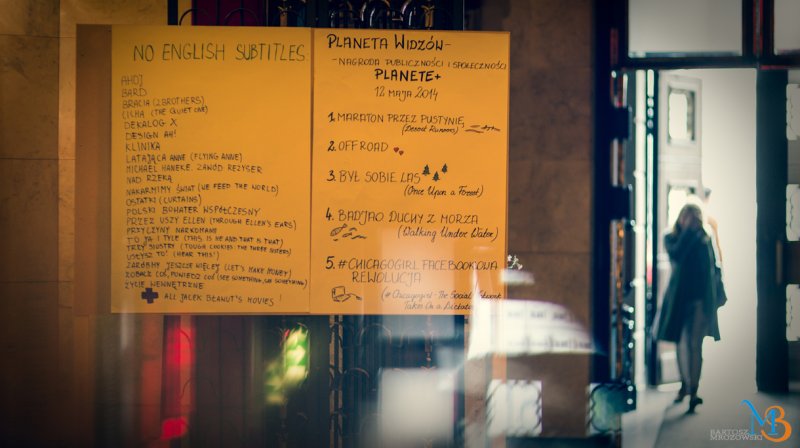 NO ENGLISH SUBTITLES
AHOJ
BARD
BRACIA (2 BROTHERS)
CICHA (THE QUIET ONE)
DEKALOG X
DESIGN AH!
KLINIKA
LATAJĄCA ANNE (FLYING ANNE)
MICHAEL HANEKE. ZAWÓD REŻYSER
NAD RZEKĄ
NAKARMIMY ŚWIAT (WE FEED THE WORLD)
OSTATKI (CURTAINS)
POLSKI BOHATER WSPÓŁCZESNY
PRZEZ USZY ELLEN (THROUGH ELLEN'S EARS)
PRZYCZYNY NARKOMANII
TO JA I TYLE (THIS IS ME AND THAT IS THAT)
TRZY SIOSTRY (TOUGH COOKIES: THE THREE SISTERS)
USŁYSZ TO! (HEAR THIS!)
ZARÓBMY JESZCZE WIĘCEJ (LET'S MAKE MONEY)
ZOBACZ COŚ, POWIEDZ COŚ (SEE SOMETHING, SAY SOMETHING)
ŻYCIE WEWNĘTRZNE
+ ALL JACEK BŁAWUT'S MOVIES!
PLANETA WIDZÓW-
- NAGRODA PUBLICZNOŚCI I SPOŁECZNOŚCI
PLANETE+
12 MAJA 2014
1. MARATON PRZEZ PUSTYNIĘ
(Desert Runners)
2. OFFROAD
3. BYŁ SOBIE LAS
(Once Upon a Forest)
4. BADJAO. DUCHY Z MORZA
(Walking Under Water)
5. #CHICAGOGIRL FACEBOOKOWA
REWOLUCJA
(#Chicagogirl - The Social Network
Takes On a Dictator)
BARTOSZ
MROZOWSKI
MB